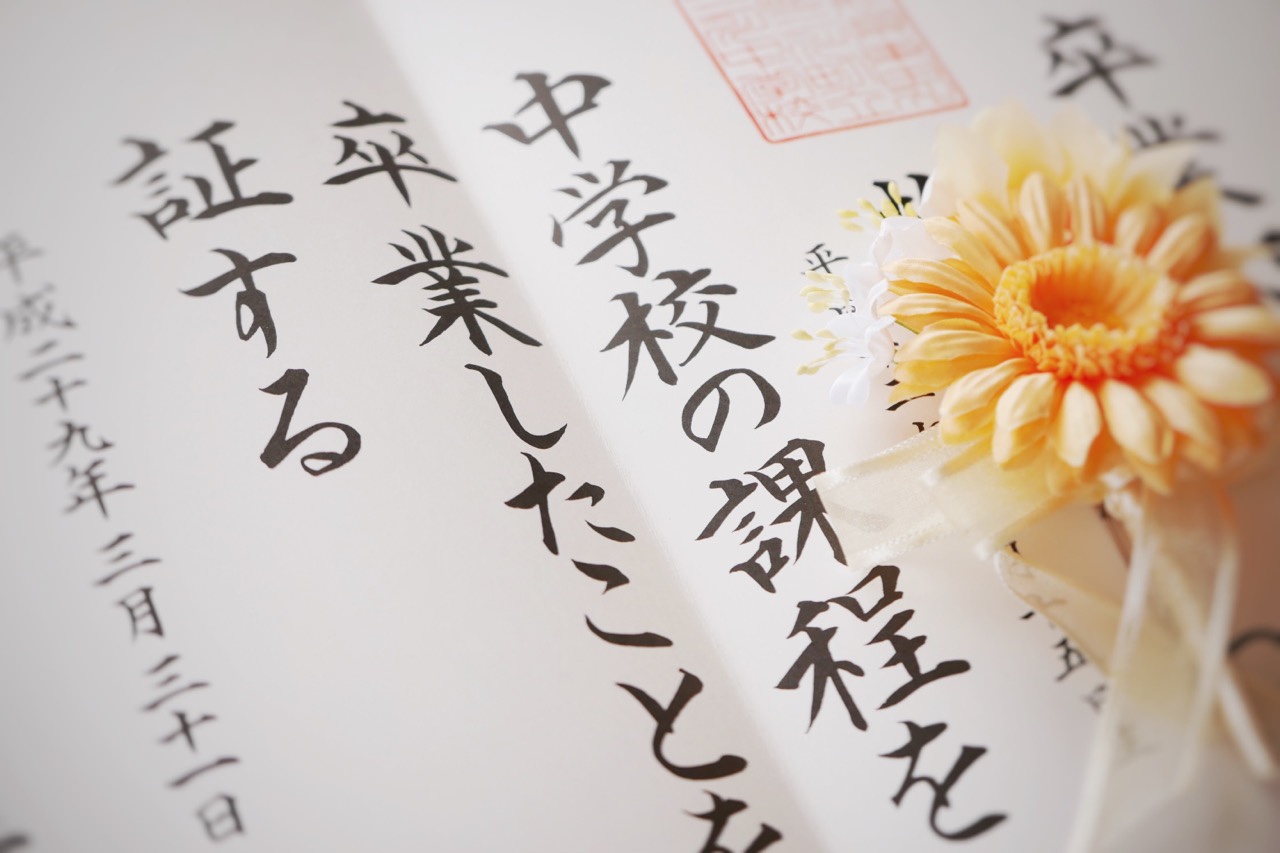 卒業
平
中学校の課程を
卒業したことを
証する
平成二十九年三月三十一日